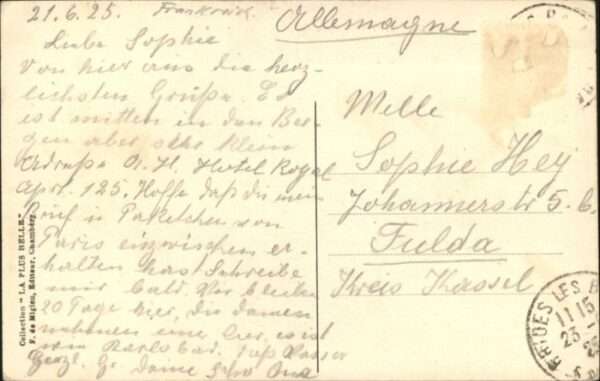 21.6.25. Frankreich
Allemagne
Liebe Sophie
Von hier aus die herz-
lichsten Grüße. Es
ist mitten in den Ber-
gen aber sehr klein
Adresse A. H. Hotel Royal
Apr. 125. Hoffe daß du mein
Brief u Paketchen von
Paris inzwischen er-
halten hast Schreibe
mir bald. Wir bleiben
20 Tage hier, die Damen
nehmen eine Cur, es ist
Karlsbad.
Melle
Sophie Hey
Johannerstr 5. 6
Fulda
Kreis Kassel
Collection "LA PLUS BELLE"
F. de Miglen, Editeur, Chambéry.
BRIDES LES B
11 15
23